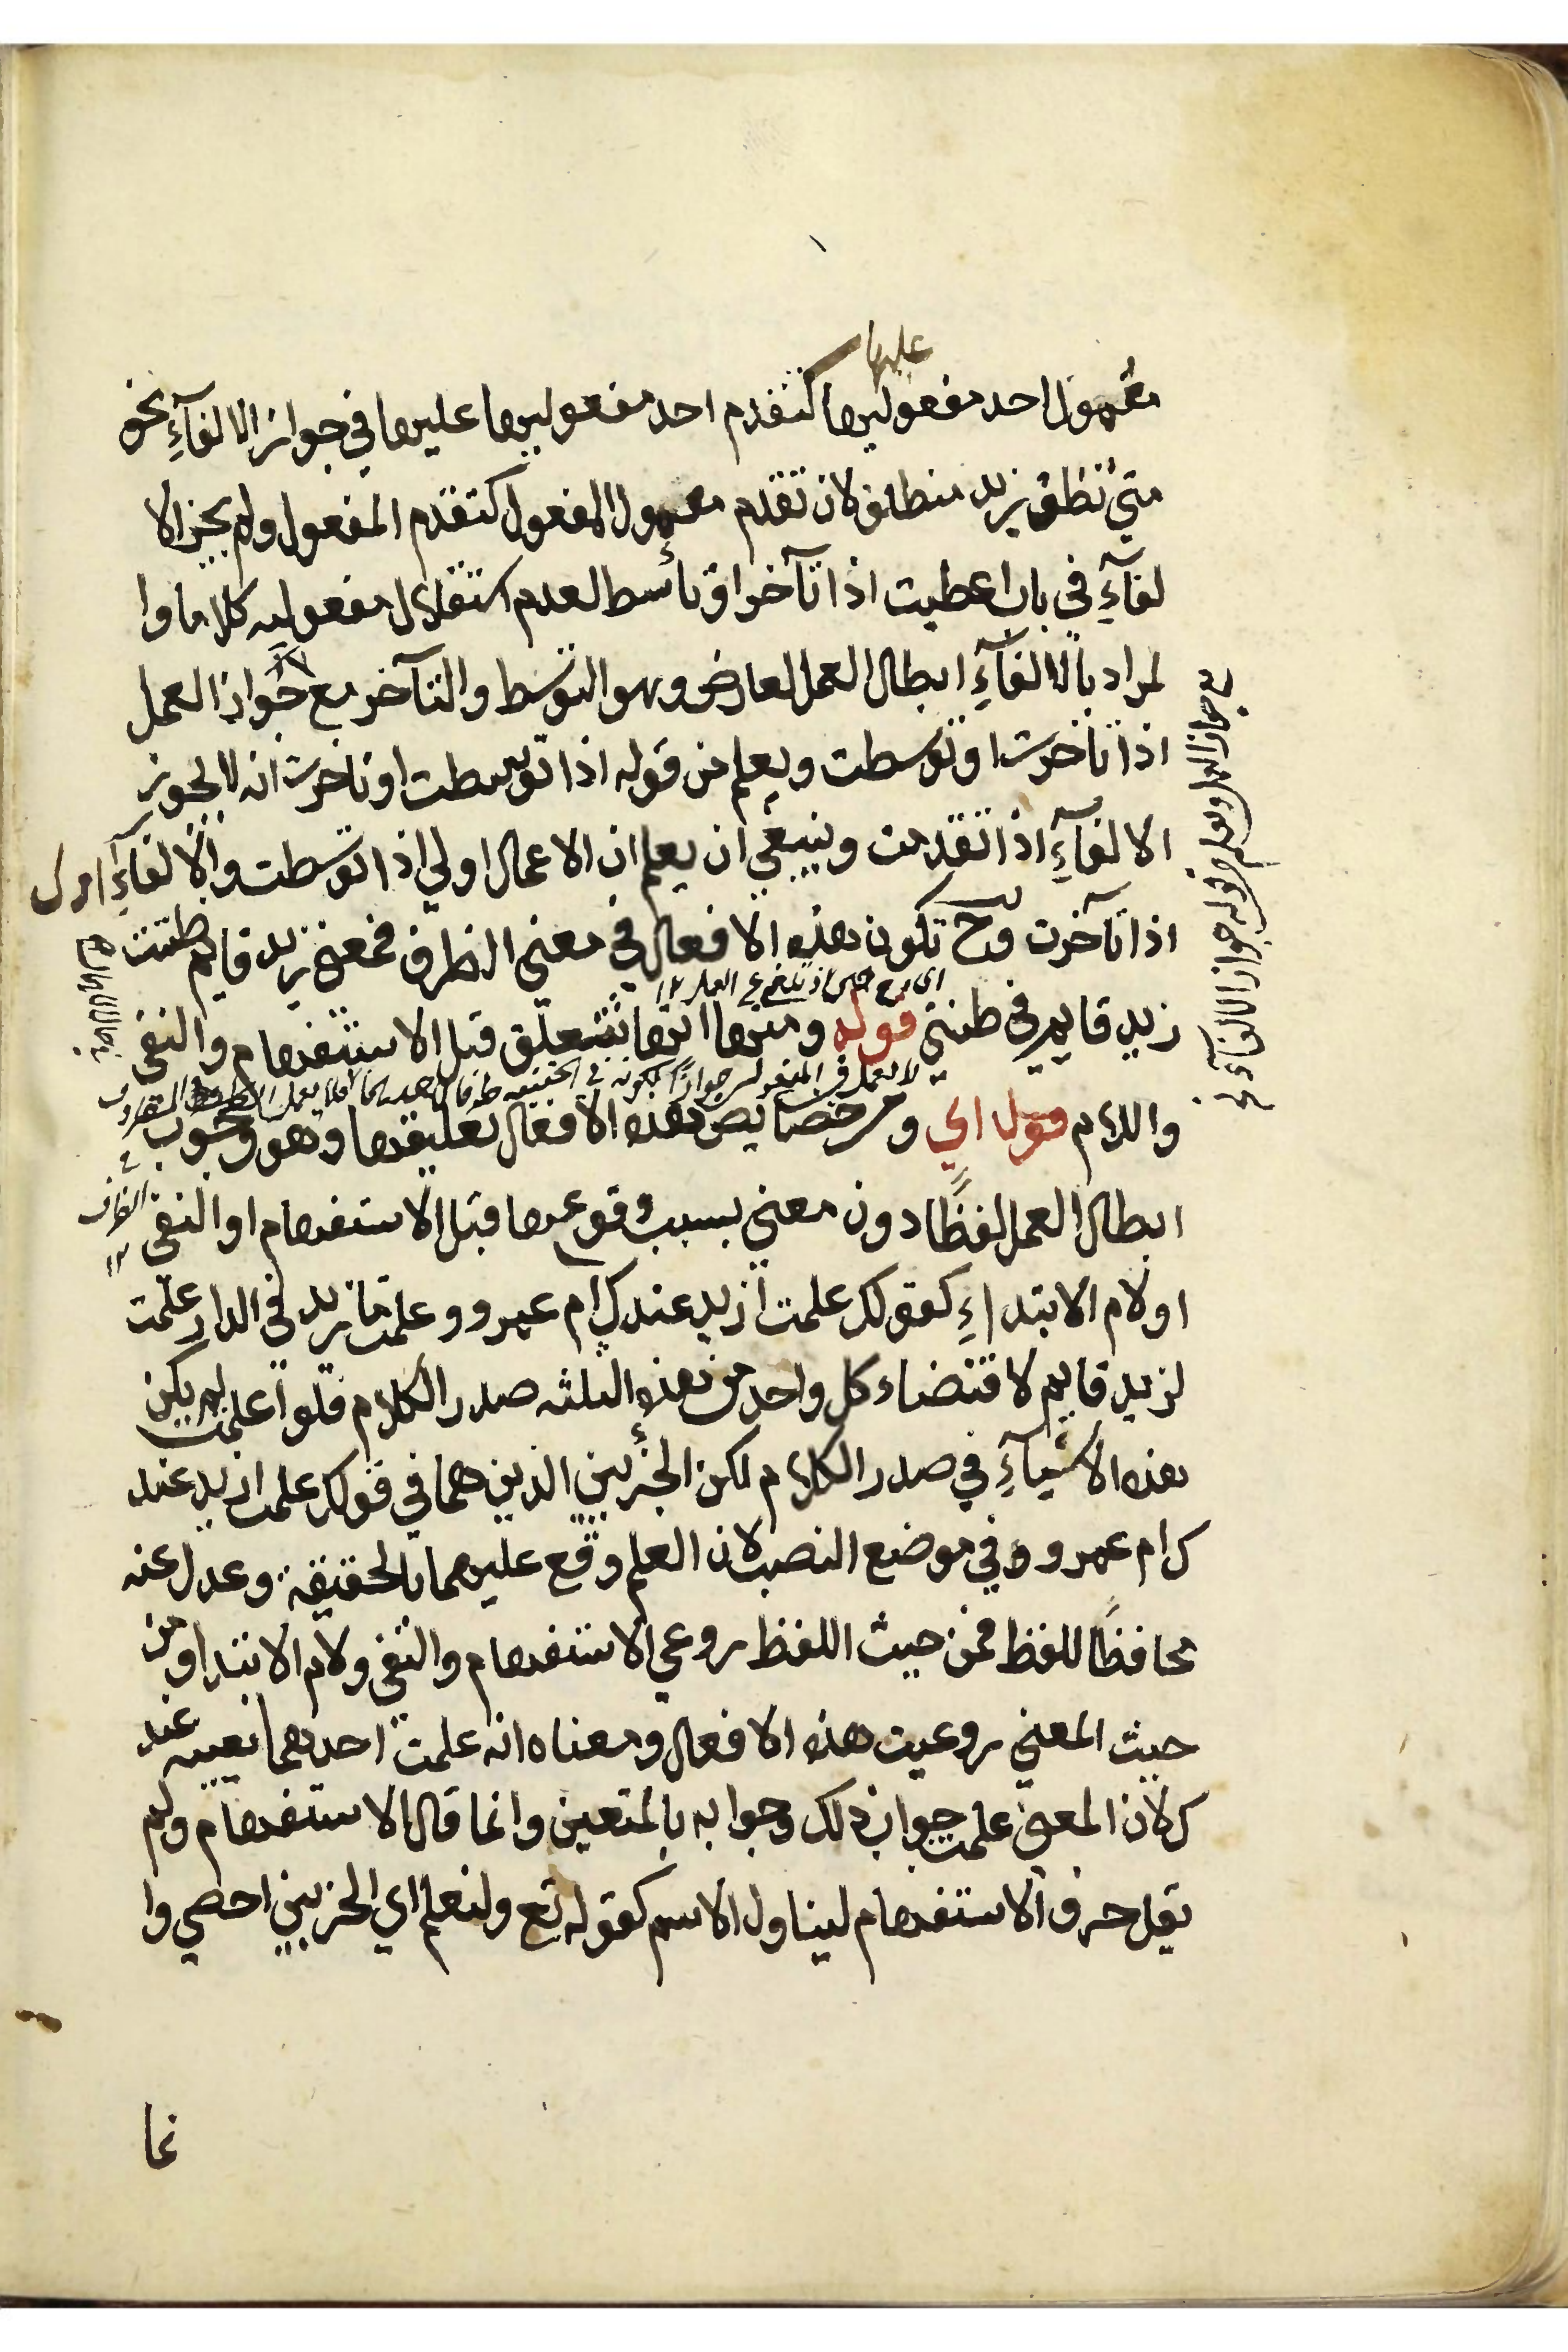 عليها
معمول احد مفعوليها كتقدم احد مفعوليها عليها في جواز الالغآءِ نحو
متي تظن زيد منطلق لان تقدم معمول المفعول كتقدم المفعول ولم يجز الا
لغآءِ في باب اعطيت اذا تآخر او تأسط لعدم استقلال مفعوليه كلاما وا
لمراد بالالغآءِ ابطال العمل لعارض وهو التوسط والتآخر مع جواز العمل
اذا تاخرت او توسطت ويعلم من قوله اذا توسطت او تاخرت انه لا يجوز
الالغآءِ اذا تقدمت وينبغي ان يعلم ان الاعمال اولي اذا توسطت والالغآءِ اولي
اذا تآخرت وح تكون هذه الافعال في معني الظرف فمعني زيد قايم ظننت
زيد قايم في ظني قوله ومنها انها تتعلق قبل الاستفهام والنفي
واللام قوله اي ومن خصايص هذه الافعال تعليقها وهو وجوب
ابطال العمل لفظًا دون معني بسبب وقوعها قبل الاستفهام او النفي
او لام الابتداءِ كقولك علمت ازيد عندك ام عمرو وعلمت ما زيد في الدار علمت
لزيد قايم لاقتضاء كل واحد من هذه الثلثه صدر الكلام فلو اعلمت لم يكن
هذه الاشيآءِ في صدر الكلام لكن الجزئين الذين هما في قولك علمت ازيد عند
ك ام عمرو وفي موضع النصب لان العلم وقع عليهما بالحقيقة وعدل عنه
محافظًا للفظ فمن حيث اللفظ روعي الاستفهام والنفي ولام الابتدا ومن
حيث المعني روعيت هذه الافعال ومعناه انه علمت احدهما بعينه عند
ك لان المعني علمت جواب ذلك وجوابه بالمتعين وانما قال الاستفهام ولم
يقل حرف الاستفهام ليناول الاسم كقوله تع ولنعلم اي الحزبين احصي وا
نما